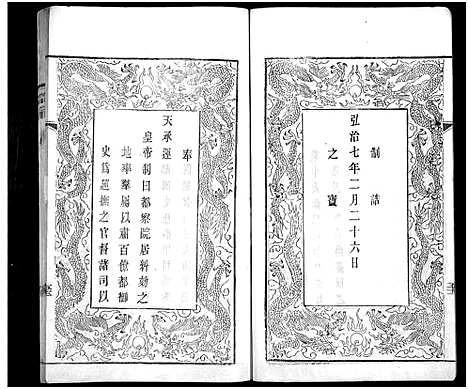 制誥
弘治七年二月二十六日
之寶
奉
天承運
皇帝制曰都察院居糾劾之
地率羣屬以肅百僚都御
史爲巡撫之官督諸司以